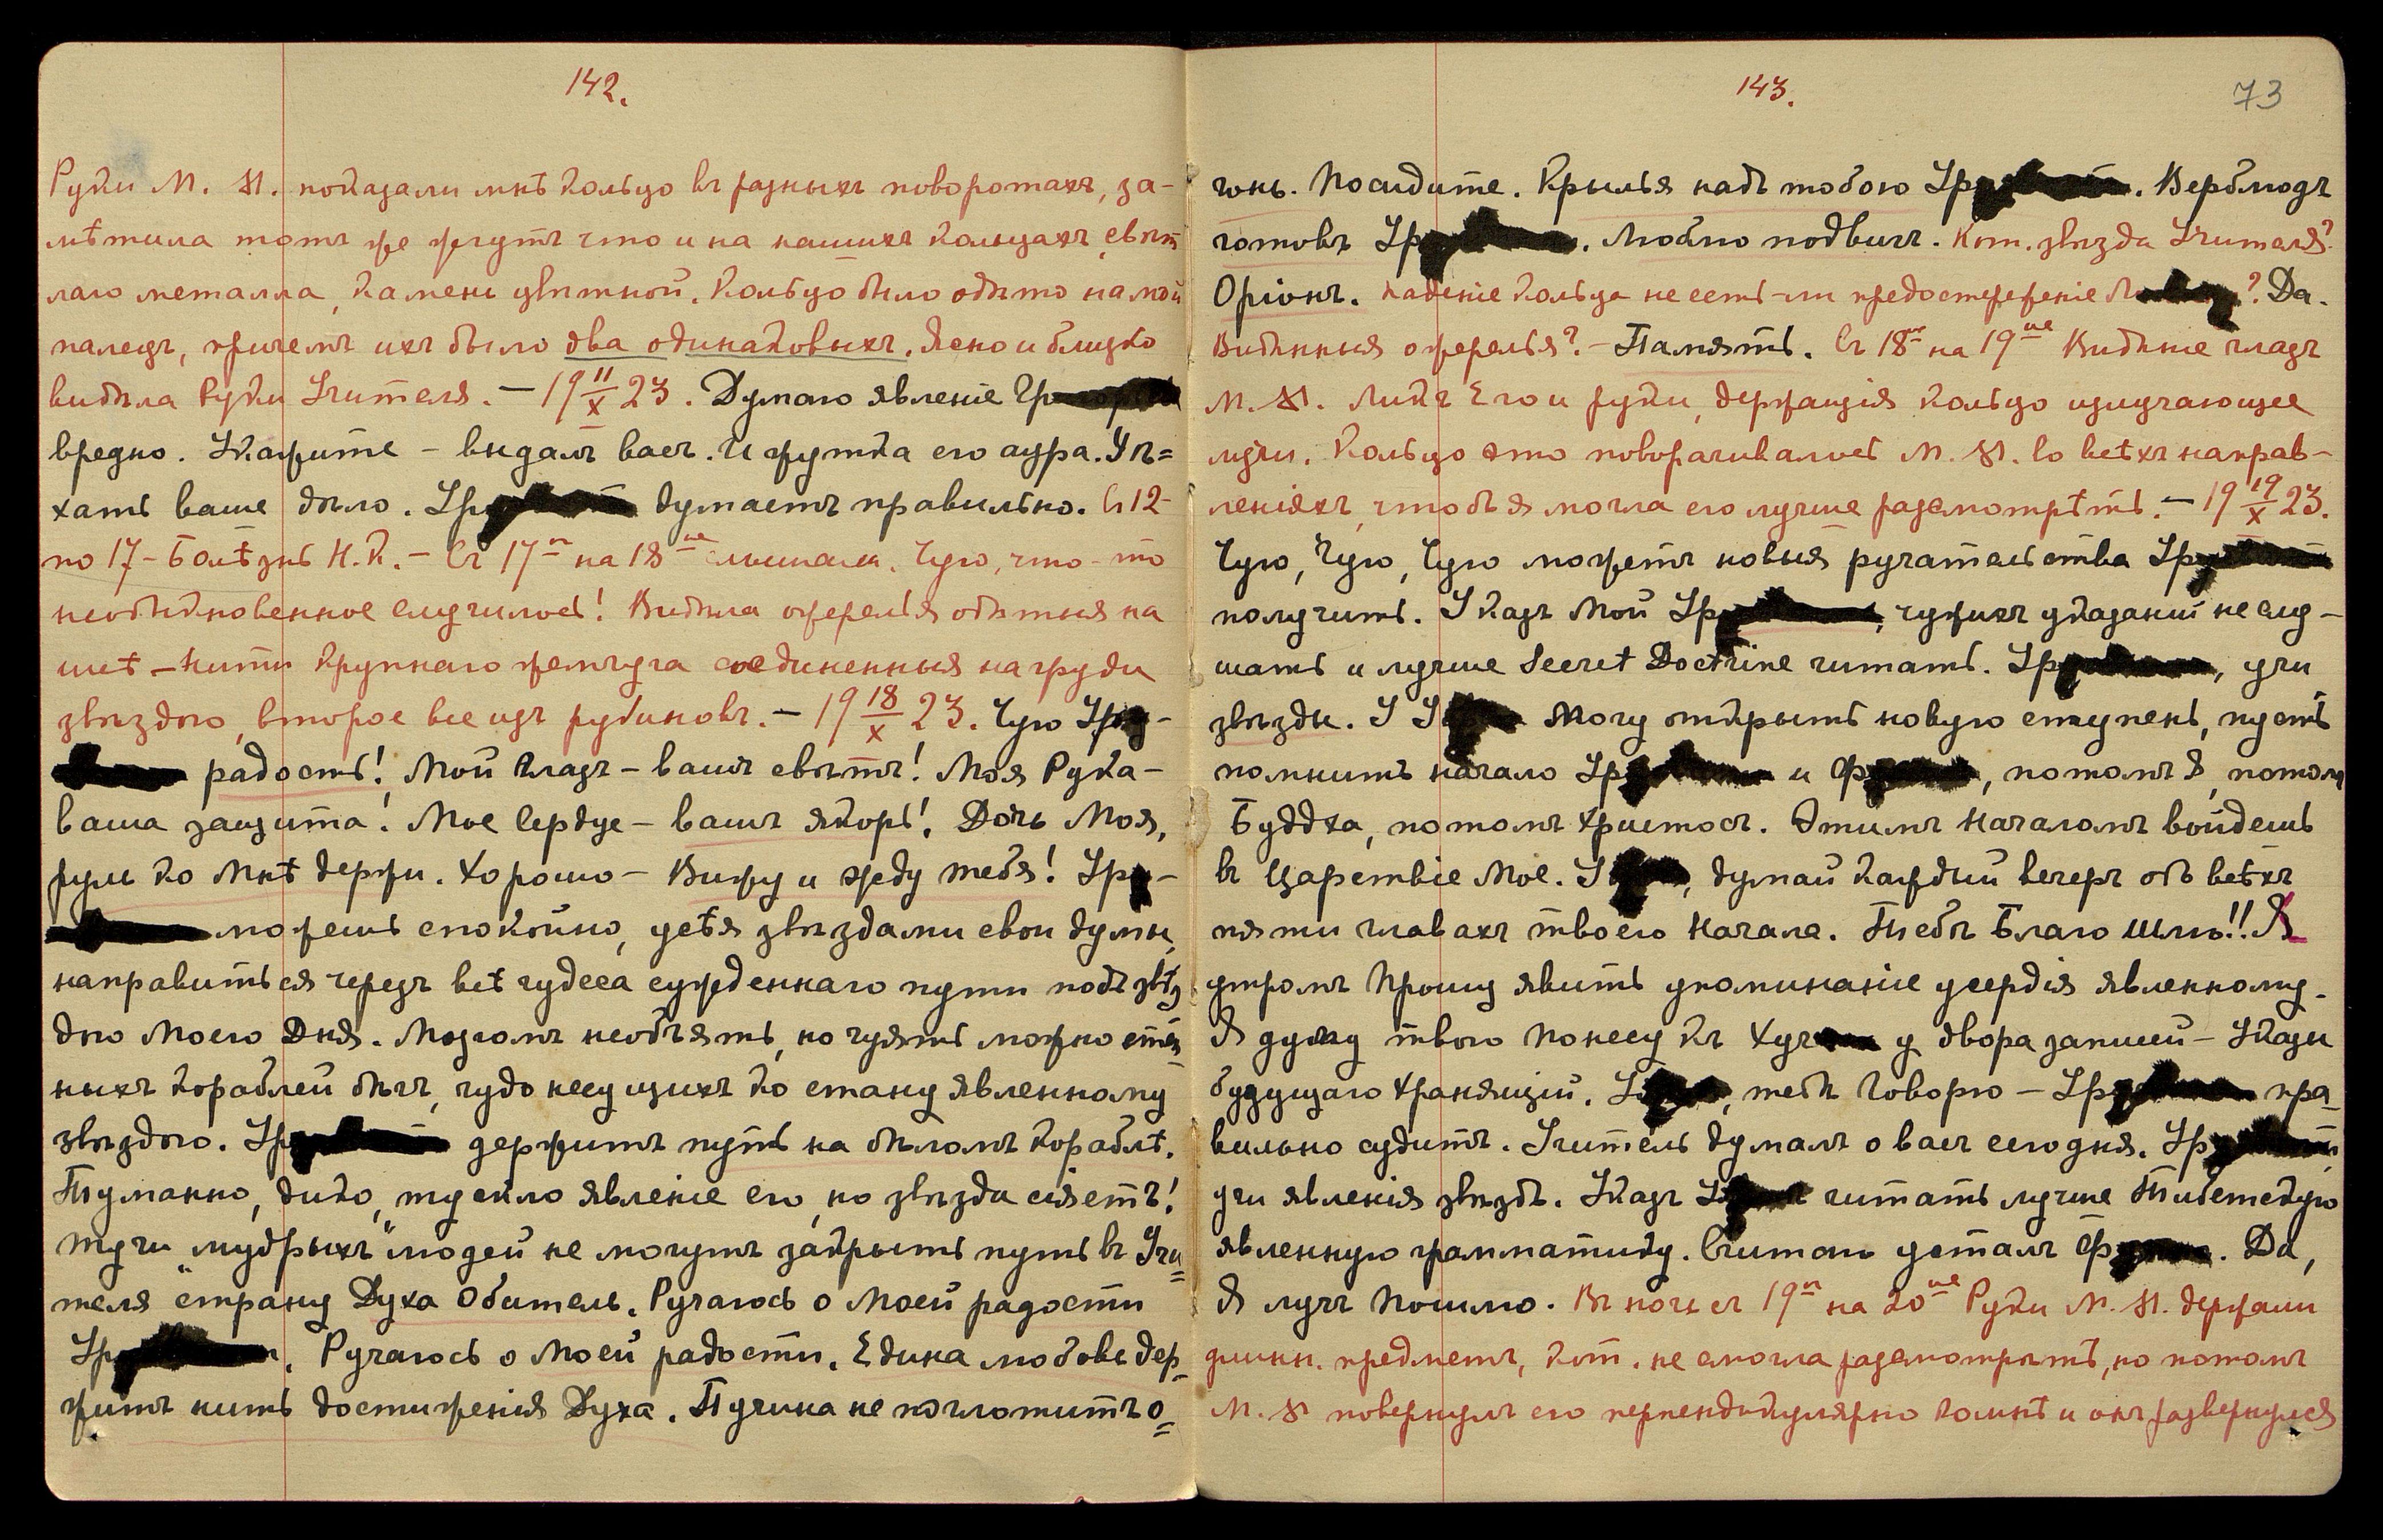 142.
Руки М. М. показали мнѣ кольцо въ разныхъ поворотахъ, за-
мѣтила тотъ же жгутъ что и на нашихъ кольцахъ, свѣт
лаго металла, камень цвѣтной. Кольцо было одѣто на мой
палецъ, причемъ ихъ было два одинаковыхъ. Ясно и близко
видѣла Руки Учителя. — 19 11/X 23. Думаю явленіе
вредно. Укажите – видалъ васъ. И жутка его аура.
хать ваше дѣло. Ур думаетъ правильно. Съ 12-
по 17 – Болѣзнь Н.К. – Съ 17го на 18ое слышала. Чую, что-то
необыкновенное случилось! Видѣла ожерелья одѣтыя на
шеѣ – нити крупнаго жемчуга соединенныя на груди
звѣздою, второе все изъ рубиновъ. – 19 18/X 23. Чую Уру-
радость! Мой Глазъ – вашъ свѣтъ! Моя Рука –
ваша защита! Мое Сердце – вашъ якорь! Дочь Моя,
руль ко Мнѣ держи. Хорошо – Вижу и жду тебя! Уру-
можешь спокойно, усѣя звѣздами свои думы,
направиться черезъ всѣ чудеса сужденнаго пути подъ звѣз
дою Моего Дня. Мозгомъ необъять, но чуять можно
ныхъ кораблей бѣгъ, чудо несущихъ ко стану явленному
звѣздою. Ур держитъ путь на бѣломъ кораблѣ.
Туманно, дико, тускло явленіе его, но звѣзда сіяетъ!
Тучи „мудрыхъ" людей не могутъ закрыть путь въ Учи=
теля страну Духа Обитель. Ручаюсь о Моей радости
Ур. Ручаюсь о Моей радости. Едина любовь дер-
житъ нить достиженія Духа. Пучина не поглотитъ о=
143.
73
гонь. Посидите. Крылья надъ тобою Ур. Верблюдъ
готовъ Ур. Люблю подвигъ. Кот. звѣзда Учителя?
Оріонъ. Паденіе кольца не есть-ли предостереженіе? Да.
Видѣнныя ожерелья? – Память. Съ 18го на 19ое Видѣніе глазъ
М. М. Ликъ Его и руки, держащія кольцо излучающее
лучи. Кольцо это поворачивалось М. М. во всѣхъ направ-
леніяхъ, чтобъ я могла его лучше разсмотрѣть. – 19 19/X 23.
Чую, Чую, Чую можетъ новыя ручательства Ур
получить. Указъ Мой Ур, чужихъ указаній не слу-
шать и лучше Secret Doctrine читать. Ур, учи
звѣзды. Могу открыть новую ступень, пусть
помнитъ начало Ур и Ф, потомъ Я, потомъ
Буддха, потомъ Христосъ. Этимъ Началомъ войдешь
въ Царствіе Мое. У, думай каждый вечеръ объ всѣхъ
пяти главахъ твоего Начала. Тебѣ Благо Шлю!! Я
утромъ Прошу явить упоминаніе усердія явленному.
Я думу твою Понесу къ у двора запишей – Указы
будущаго Хранящій. У, тебѣ Говорю – Ур пра-
вильно судитъ. Учитель думалъ о васъ сегодня. Ур
учи явленія звѣздъ. Указъ читать лучше Тибетскую
явленную грамматику. Считаю усталъ Ф. Да,
Я лучъ Пошлю. Въ ночь съ 19го на 20ое Руки М. М. держали
длинн. предметъ, кот. не смогла разсмотрѣть, но потомъ
М. М повернулъ его перпендикулярно ко мнѣ и онъ развернулся